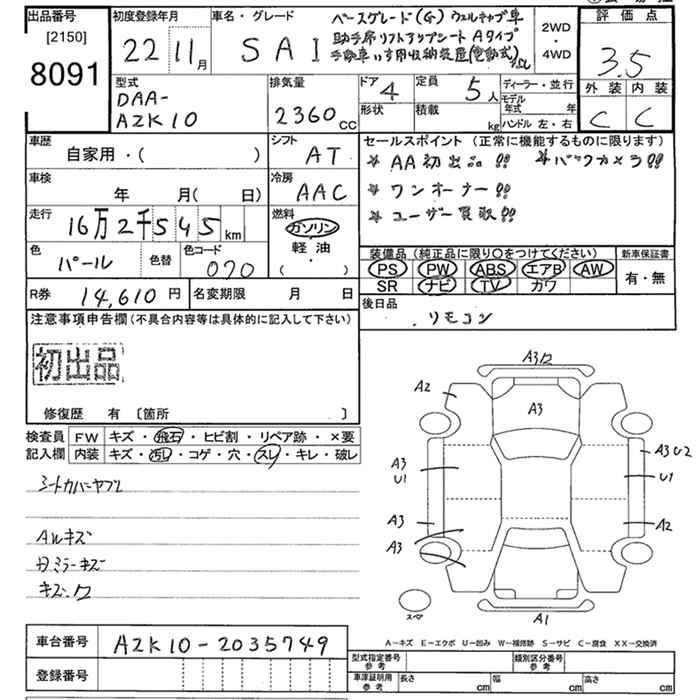 出品番号
[2150]
8091
初度登録年月
22 11月
車名・グレード
SAI
ベースグレード(G)ウェルキャブ車
助手席リフトアップシートAタイプ
手動車いす用収納装置(電動式)
2WD
・
4WD
評価点
3.5
外装 内装
C C
型式
DAA-
AZK10
排気量
2360cc
ドア 4
形状
定員 5人
積載 kg
ディーラー・並行
モデル年式 年
ハンドル 左・右
車歴
自家用・( )
シフト
AT
セールスポイント(正常に機能するものに限ります)
★ AA初出品!! ★バックカメラ!!
★ ワンオーナー!!
★ ユーザー買取!!
車検
年 月( 日)
冷房
AAC
走行
16万2千545km
燃料
ガソリン
軽油
( ・ )
色
パール
色替
色コード
070
装備品(純正品に限り○をつけてください)
PS PW ABS エアB AW
SR ナビ TV カワ
新車保証書
有・無
R券 14,610円
名変期限 月 日
後日品
リモコン
注意事項申告欄(不具合内容等は具体的に記入して下さい)
初出品
修復歴 有 〔箇所 〕
検査員
記入欄
FW キズ・飛石・ヒビ割・リペア跡・×要
内装 キズ・汚レ・コゲ・穴・スレ・キレ・破レ
シートカバーヤブレ
Aルキズ
ミラーキズ
キズ・ワ
A2
A3
A3
U1
A3U2
U1
A3
A3
A2
A1
スペア
A-キズ E-エクボ U-凹み W-補修跡 S-サビ C-腐食 XX-交換済
車台番号 AZK10-2035749
登録番号
型式指定番号
参考
類別区分番号
参考
車庫証明用
参考
長さ cm 幅 cm 高さ cm